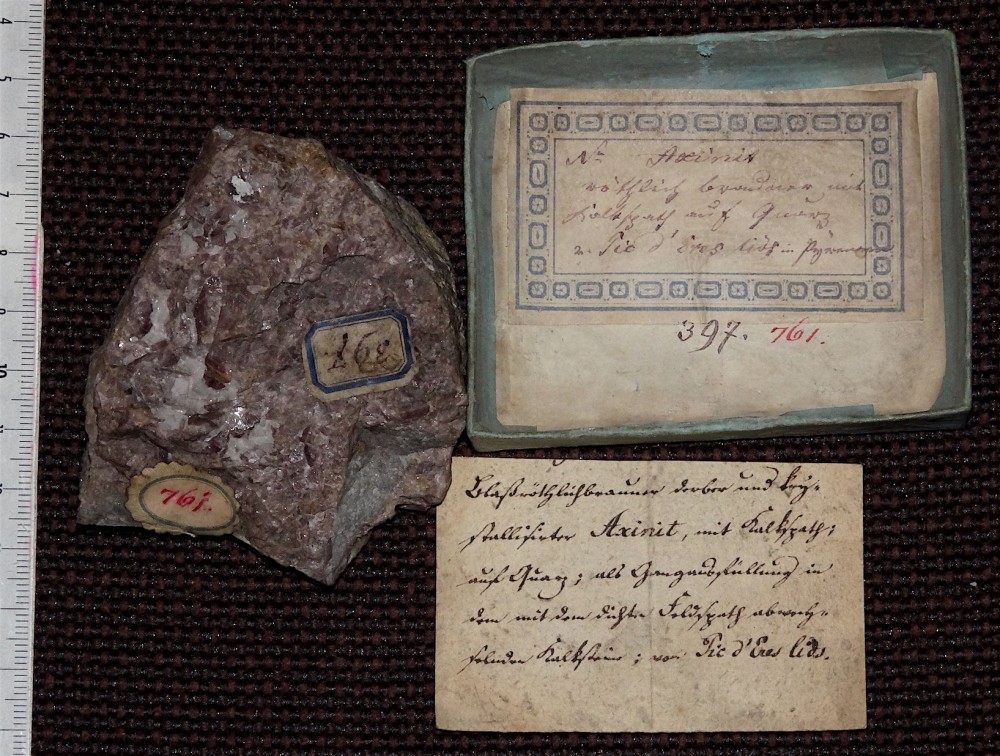 4
5
6
7
8
9
10
11
397
761.
No Axinit
röthlich brauner mit
Kalkspath auf Quarz
v. Pic d'Eres lids in Pyrenaeen
397. 761.
Blaßröthlichbrauner derber und kry-
stallisirter Axinit, mit Kalkspath;
auf Quarz; als Gangausfüllung in
dem mit dem dichten Feldspath abwech-
selnden Kalkstein; von Pic d'Eres lids.